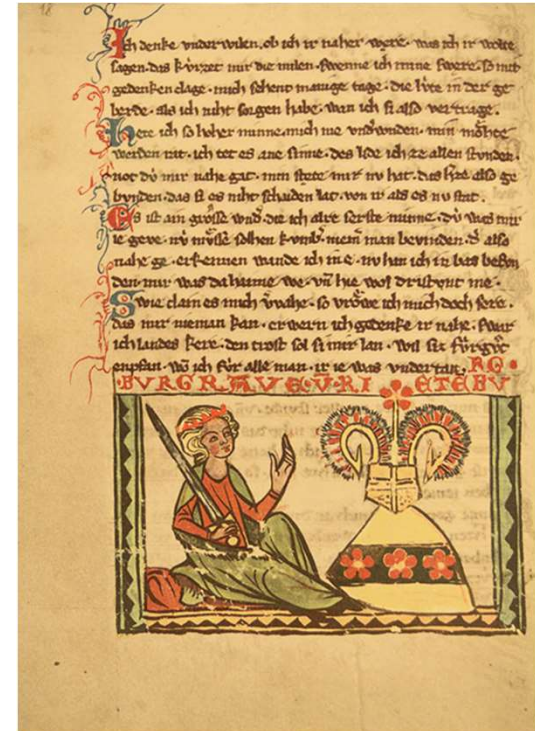 Ich denke vnder wilen. ob ich ir naher were. was ich ir wolte
sagen. das kv́rzet mir die milen. swenne ich mine swere. so mit
gedenken clage. mich sehent manige tage. die lv́te in der ge
berde. als ich niht sorgen habe. wan ich si also vertrage.
Hete ich so hoher minne. mich nie vnderwunden. min möhte
werden rat. ich tet es ane sinne. des lide ich ze allen stunden.
not dv́ mir nahe gat. min stete mir nv hat. das herze also ge
bunden. das si es niht scheiden lat. von ir als es nv stat.
Es ist ain grosse die ich alre serste minne. dv́ was mir
ie geve. nv mv́sse solhen kvmber niemer man bevinden. der also
nahe ge. erkennen wande ich in e. nv han ich in bas bevn
den. mir was da haime we. vnd hie wol dristvnt me.
Swie clain es mich vervahe. so vröwe ich mich doch sere.
das mir nieman kan. erwern ich gedenke ir nahe. swar
ich landes kere. den trost sol si mir lan. wil si
enpfan. ich fv́r alle man. ir ie was vndertan. RG
BVRGRAVE V RI ETEBV